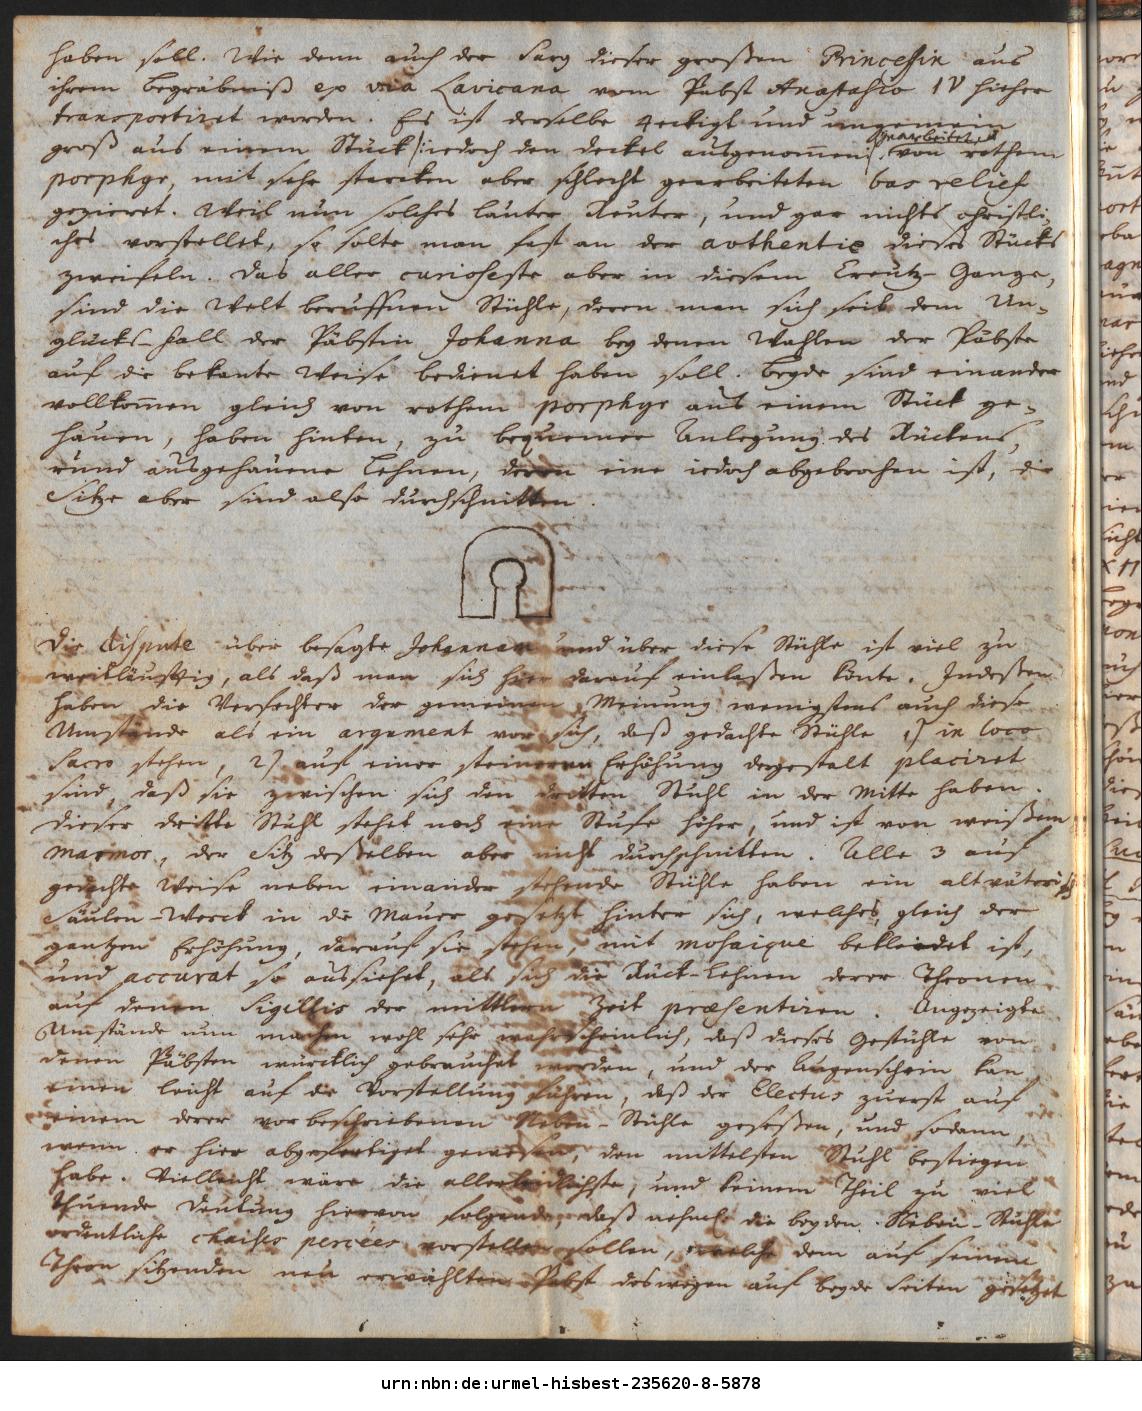 haben soll. Wie denn auch der Sarg dieser großen Princeßin aus
ihrem Begräbniß ex via Lavicana vom Pabst Anastasio IV hieher
transportiret worden. Es ist derselbe 4eckigt und ungemein
groß aus einem Stück /:iedoch den deckel ausgenom̄en:/ von rothem
gearbeitet,
porphyr, mit sehr starcken aber schlecht gearbeiteten bas relief
gezieret. Weil nun solches lauter Reuter, und gar nichts christli-
ches vorstellet, so solte man fast an der avthentie dieses Stücks
zweifeln. Das aller curioseste aber in diesem Creutz-Gange,
sind die Welt beruffnen Stühle, deren man sich seit dem Un-
glücks-Fall der Päbstin Johanna bey denen Wahlen der Päbste
auf die bekante Weise bedienet haben soll. Beyde sind einander
vollkom̄en gleich von rothem porphyr aus einem Stück ge-
hauen, haben hinten, zu bequemer Anlegung des Rückens,
rund ausgehauene Lehnen, deren eine iedoch abgebrochen ist, die
Sitze aber sind also durchschnitten.
Die dispute über besagte Johannam und über diese Stühle ist viel zu
weitläufftig, als daß man sich hier darauf einlaßen könte. Indeßen
haben die Verfechter der gemeinen Meinung wenigstens auch diese
Umstände als ein argument vor sich, daß gedachte Stühle 1) in loco
sacro stehen, 2) auf einer steinernen Erhöhung dergestalt placiret
sind, daß sie zwischen sich den dritten Stuhl in der Mitte haben.
Dieser dritte Stuhl stehet noch eine Stufe höher, und ist von weißem
Marmor, der Sitz deßelben aber nicht durchschnitten. Alle 3 auf
gedachte Weise neben einander stehende Stühle haben ein altväterisch
Säulen-Werck in die Mauer gesetzt hinter sich, welches, gleich der
gantzen Erhöhung, darauf sie stehen, mit mosaique bekleidet ist,
und accurat so aussiehet, als sich die Rück-Lehnen derer Thronen
auf denen Sigillis der mittlern Zeit præsentiren. Angezeigte
Umstände nun machen wohl sehr wahrscheinlich, daß dieses Gestühle von
denen Päbsten würcklich gebrauchet worden, und der Augenschein kan
einen leicht auf die Vorstellung führen, daß der Electus zuerst auf
einem derer vorbeschriebenen Neben-Stühle geseßen, und sodann,
wenn er hier abgefertiget gewesen, den mittelsten Stuhl bestiegen
habe. Vielleicht wäre die allerleidlichste, und keinem Theil zu viel
thuende Deutung hiervon folgende, daß nehml. die beyden Neben-Stühle
ordentliche chaises percées vorstellen sollen, welche dem auf seinem
Thron sitzenden neu erwählten Pabst deswegen auf beyde Seiten gesetzet
urn:nbn:de:urmel-hisbest-235620-8-5878